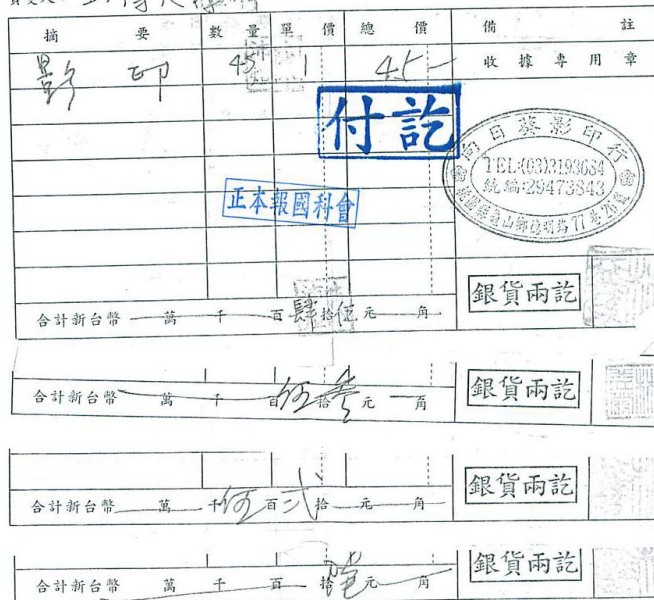 摘要 數量 單價 總價 備註
影印 45 1 45- 收據專用章
付訖
向日葵影印行
TEL:(03)3193684
統編:29473843
正本報國科會
銀貨兩訖
合計新台幣 萬 千 百 肆 拾 伍 元 角
合計新台幣 萬 千 百 伍 拾 元 角
銀貨兩訖
合計新台幣 萬 千 伍 百 弍 拾 元 角
銀貨兩訖
合計新台幣 萬 千 百 拾 元 角
銀貨兩訖